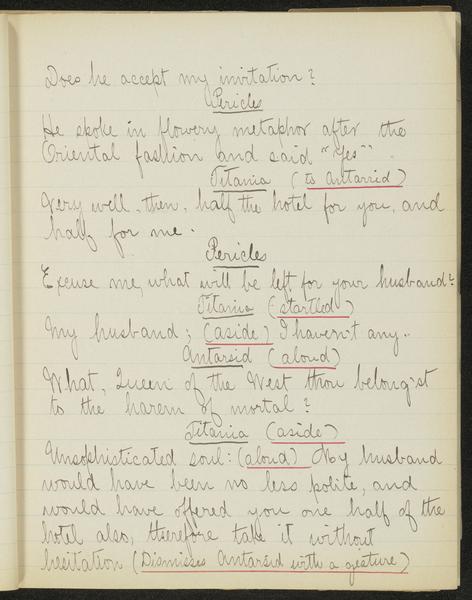 Does he accept my invitation?
Pericles
He spoke in flowery metaphor after the
Oriental fashion and said "Yes".
Titania (to Antarsid)
Very well, then, half the hotel for you, and
half for me.
Pericles
Excuse me, what will be left for your husband?
Titania (startled)
My husband; (aside) I haven't any..
Antarsid (aloud)
What, Queen of the West thou belong'st
to the harem of mortal?
Titania (aside)
Unsophisticated soul: (aloud) My husband
would have been no less polite, and
would have offered you one half of the
hotel also, therefore take it without
hesitation (Dismisses Antarsid with a gesture)